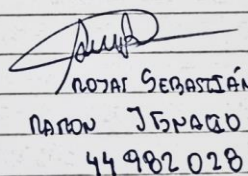 ROJAS SEBASTIÁN
RAMON IGNACIO
44 982 028